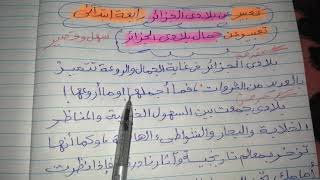 تعبير عن بلادي الجزائر رابعة ابتدائي
تعبير عن جمال بلادي الجزائر سهل وقصير
بلادي الجزائر في غاية الجمال والروعة تتميز
بالعديد من الثروات، فما أجملها وما أروعها!
بلادي جمعت بين السهول والمناظر
الخلابة والبحار والشواطئ وكما أنها
تزخر بمعالم تاريخية وآثار نادرة فإذا نظرت